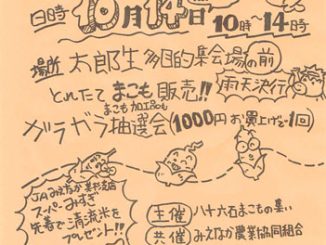 日時 10月14日 10時〜14時
場所 太郎生多目的集会場の前
雨天決行
とれたてまこも販売!!
まこも加工品も
ガラガラ抽選会(1000円お買上げで1回)
JAみえなか
スーパーみすぎ
先着で清流米を
プレゼント!!
主催 八十六石まこもの集い
共催 みえなか農業協同組合